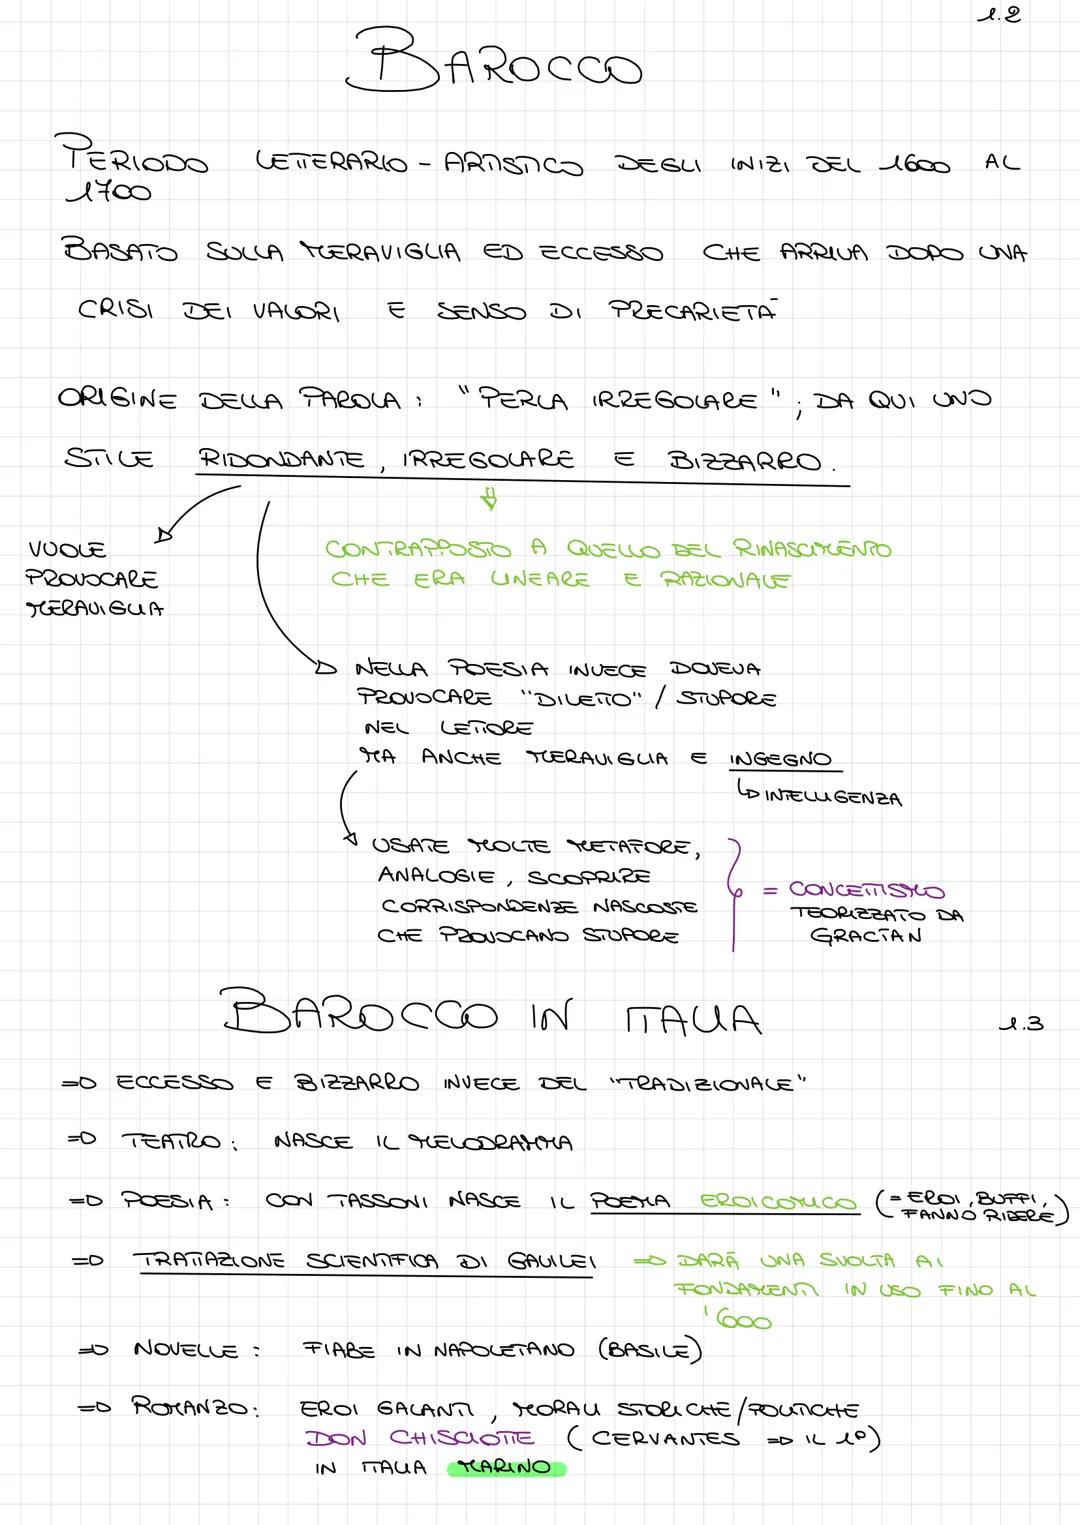 1.2
BAROCCO
PERIODO LETTERARIO - ARTISTICO DEGLI INIZI DEL 1600 AL
1700
BASATO SULLA MERAVIGLIA ED ECCESSO CHE ARRIVA DOPO UNA
CRISI DEI VALORI E SENSO DI PRECARIETÀ
ORIGINE DELLA PAROLA : "PERLA IRREGOLARE" ; DA QUI UNO
STILE RIDONDANTE , IRREGOLARE E BIZZARRO .
VUOLE
PROVOCARE
MERAVIGLIA
CONTRAPPOSTO A QUELLO DEL RINASCIMENTO
CHE ERA LINEARE E RAZIONALE
NELLA POESIA INVECE DOVEVA
PROVOCARE "DILETTO" / STUPORE
NEL LETTORE
MA ANCHE MERAVIGLIA E INGEGNO
↳ INTELLIGENZA
USATE MOLTE METAFORE,
ANALOGIE , SCOPRIRE
CORRISPONDENZE NASCOSTE
CHE PROVOCANO STUPORE
= CONCETTISMO
TEORIZZATO DA
GRACIAN
BAROCCO IN ITALIA
1.3
=> ECCESSO E BIZZARRO INVECE DEL "TRADIZIONALE"
=> TEATRO : NASCE IL MELODRAMMA
=> POESIA : CON TASSONI NASCE IL POEMA EROICOMICO (= EROI , BUFFI ,
FANNO RIDERE)
=> TRATTAZIONE SCIENTIFICA DI GALILEI => DARÀ UNA SVOLTA AI
FONDAMENTI IN USO FINO AL
'600
=> NOVELLE : FIABE IN NAPOLETANO (BASILE)
=> ROMANZO : EROI GALANTI , MORALI STORICHE/POLITICHE
DON CHISCIOTTE (CERVANTES => IL 1°)
IN ITALIA MARINO